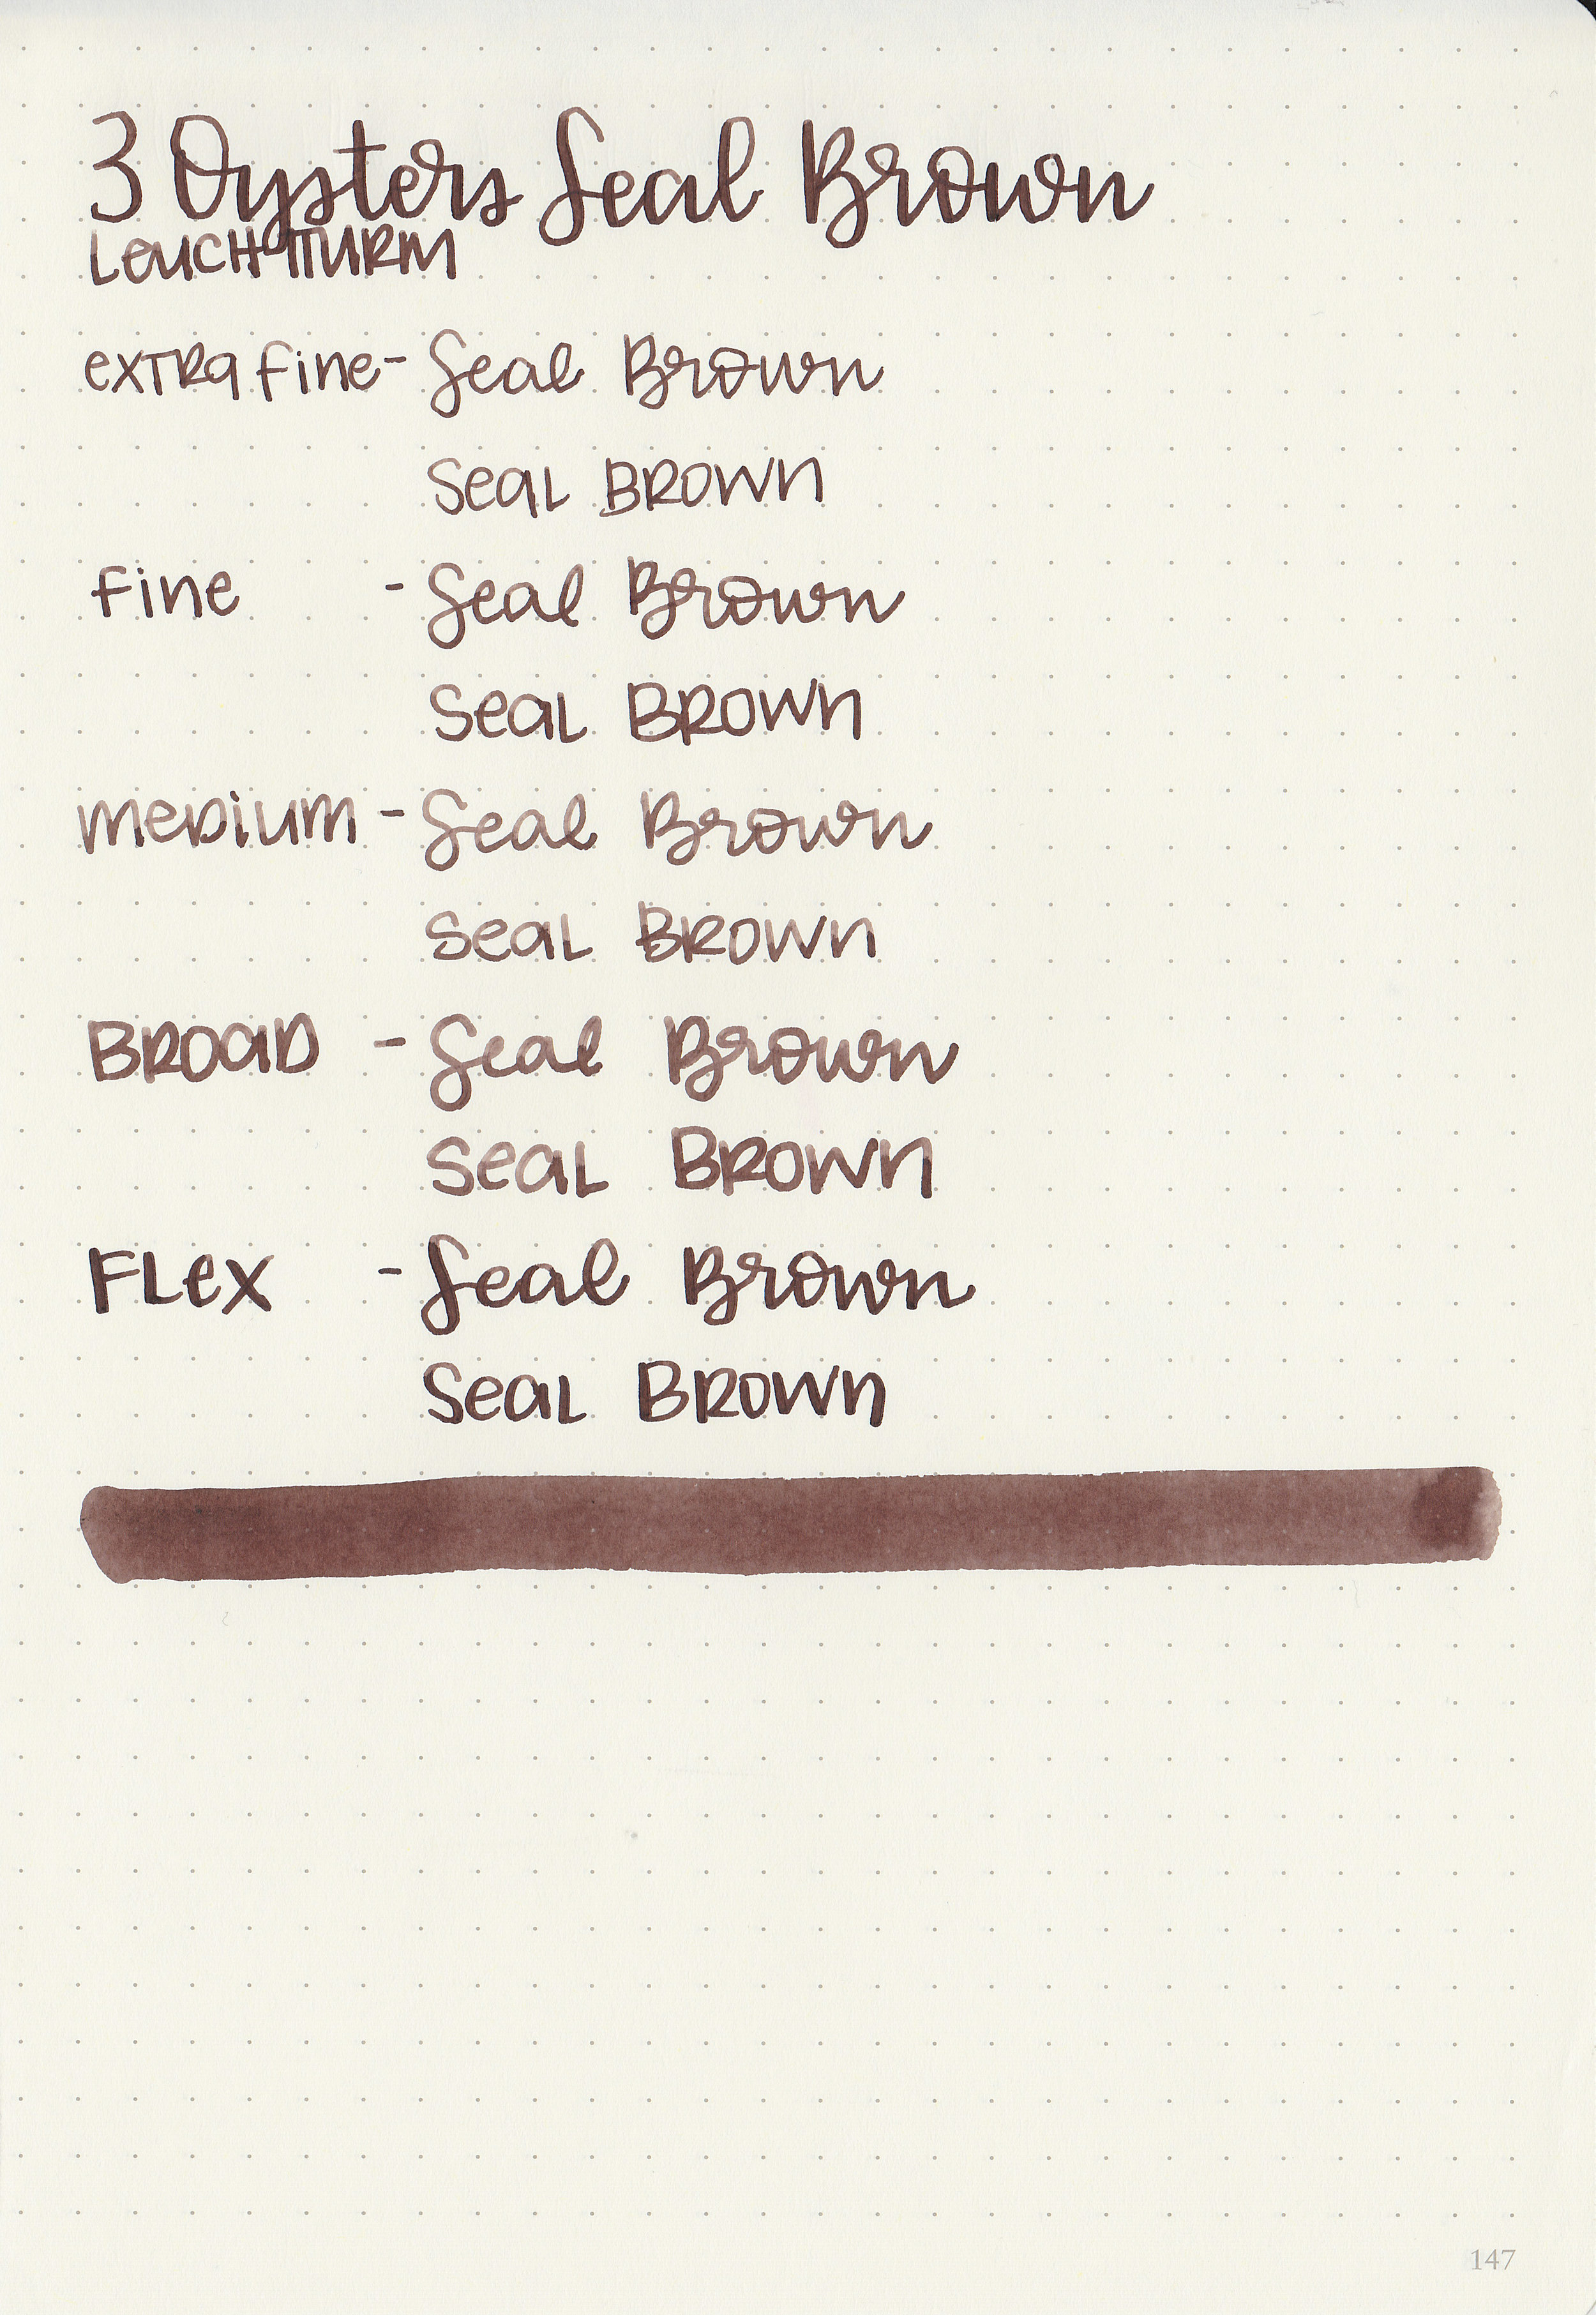 3 Oysters Seal Brown
LeUCHTTURM
exTRa fine - Seal Brown
SeaL BROWn
fine - Seal Brown
SeaL BROWn
meDium - Seal Brown
SeaL BROWn
BROaD - Seal Brown
SeaL BROWn
FLex - Seal Brown
SeaL BROWn
147